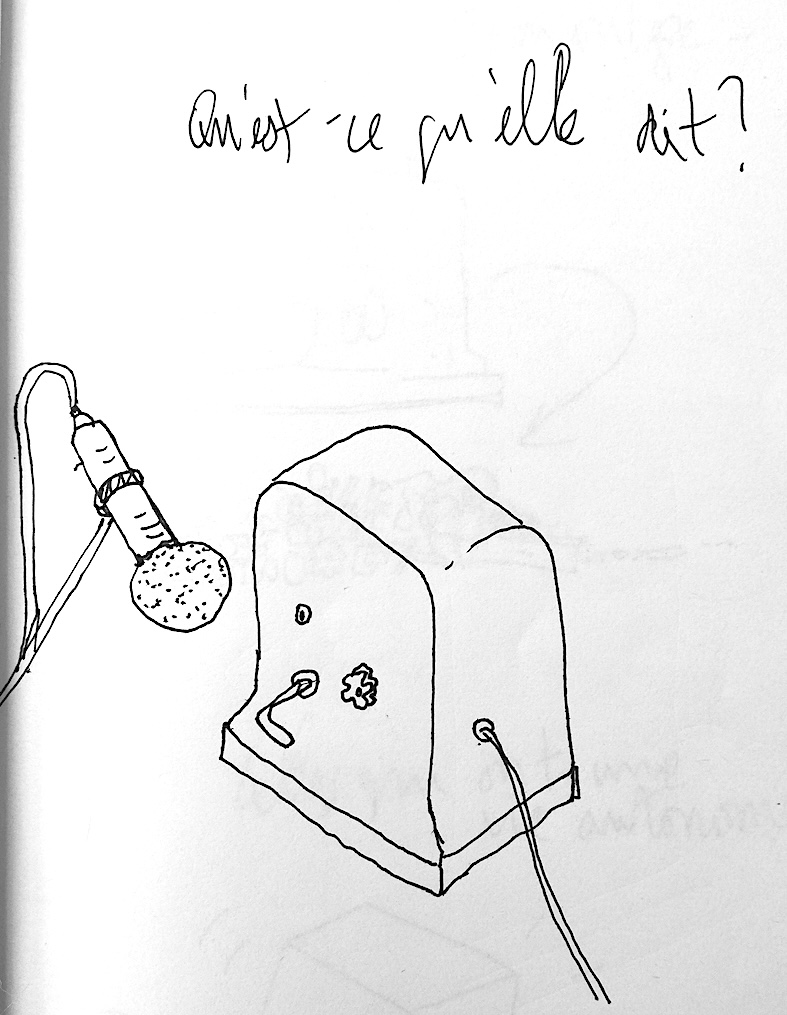 Qu'est-ce qu'elle dit?